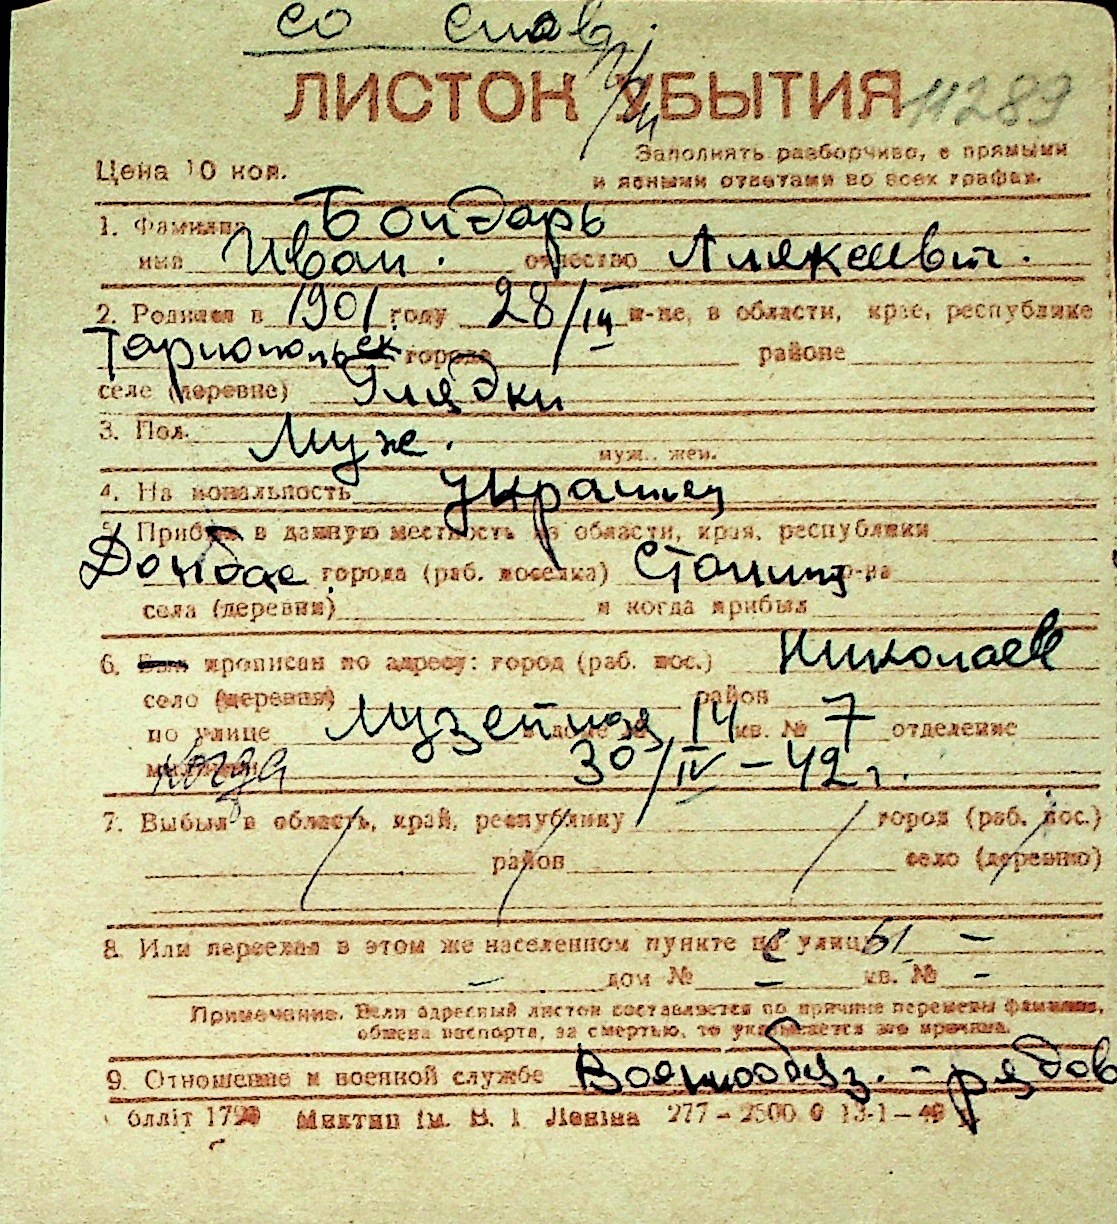 со слов
ЛИСТОК УБЫТИЯ 11289
Цена 10 коп.
Заполнять разборчиво, с прямыми
и ясными ответами во всех графах.
1. Фамилия Бондарь
имя Иван. отчество Алякеевич.
2. Родился в 1901 году 28/III м-це, в области, крае, республике
Тарнопольск. города районе
селе (деревне) Глядки
3. Пол. Муж.
муж., жен.
4. Национальность Украинец
5. Прибыл в данную местность из области, края, республики
Донбас города (раб. поселка) Станиц. р-на
села (деревни) и когда прибыл
6. Был прописан по адресу: город (раб. пос.) Николаев
село (деревня) район
по улице Музейная в доме № 14 кв. № 7 отделение
милиции когда 30/IV-42 г.
7. Выбыл в область, край, республику город (раб. пос.)
район село (деревню)
8. Или переехал в этом же населенном пункте на улицу
– дом № – кв. № –
Примечание. Если адресный листок составляется по причине перемены фамилии,
обмена паспорта, за смертью, то указывается эта причина.
9. Отношение к военной службе Военнообяз. – рядов
Облліт 1790 Миктип ім. В. І. Леніна 277–2500.0 13-1–49